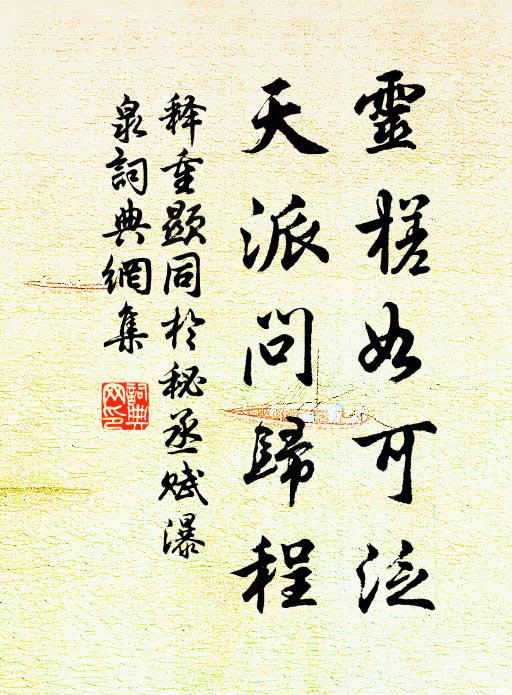 靈槎如可泛
天派問歸程
释重顯同於秘丞賦瀑
泉詞典網集
詞典
网印